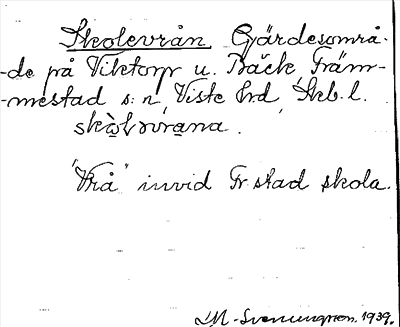 Skolevrån Gärdesområ-
-de på Viktorp u. Bäck, Främ-
-mestad s:n, Viste hrd, Skb.l.
"Vrå" invid Fr.stad skola.
M. Svenungsson. 1939.